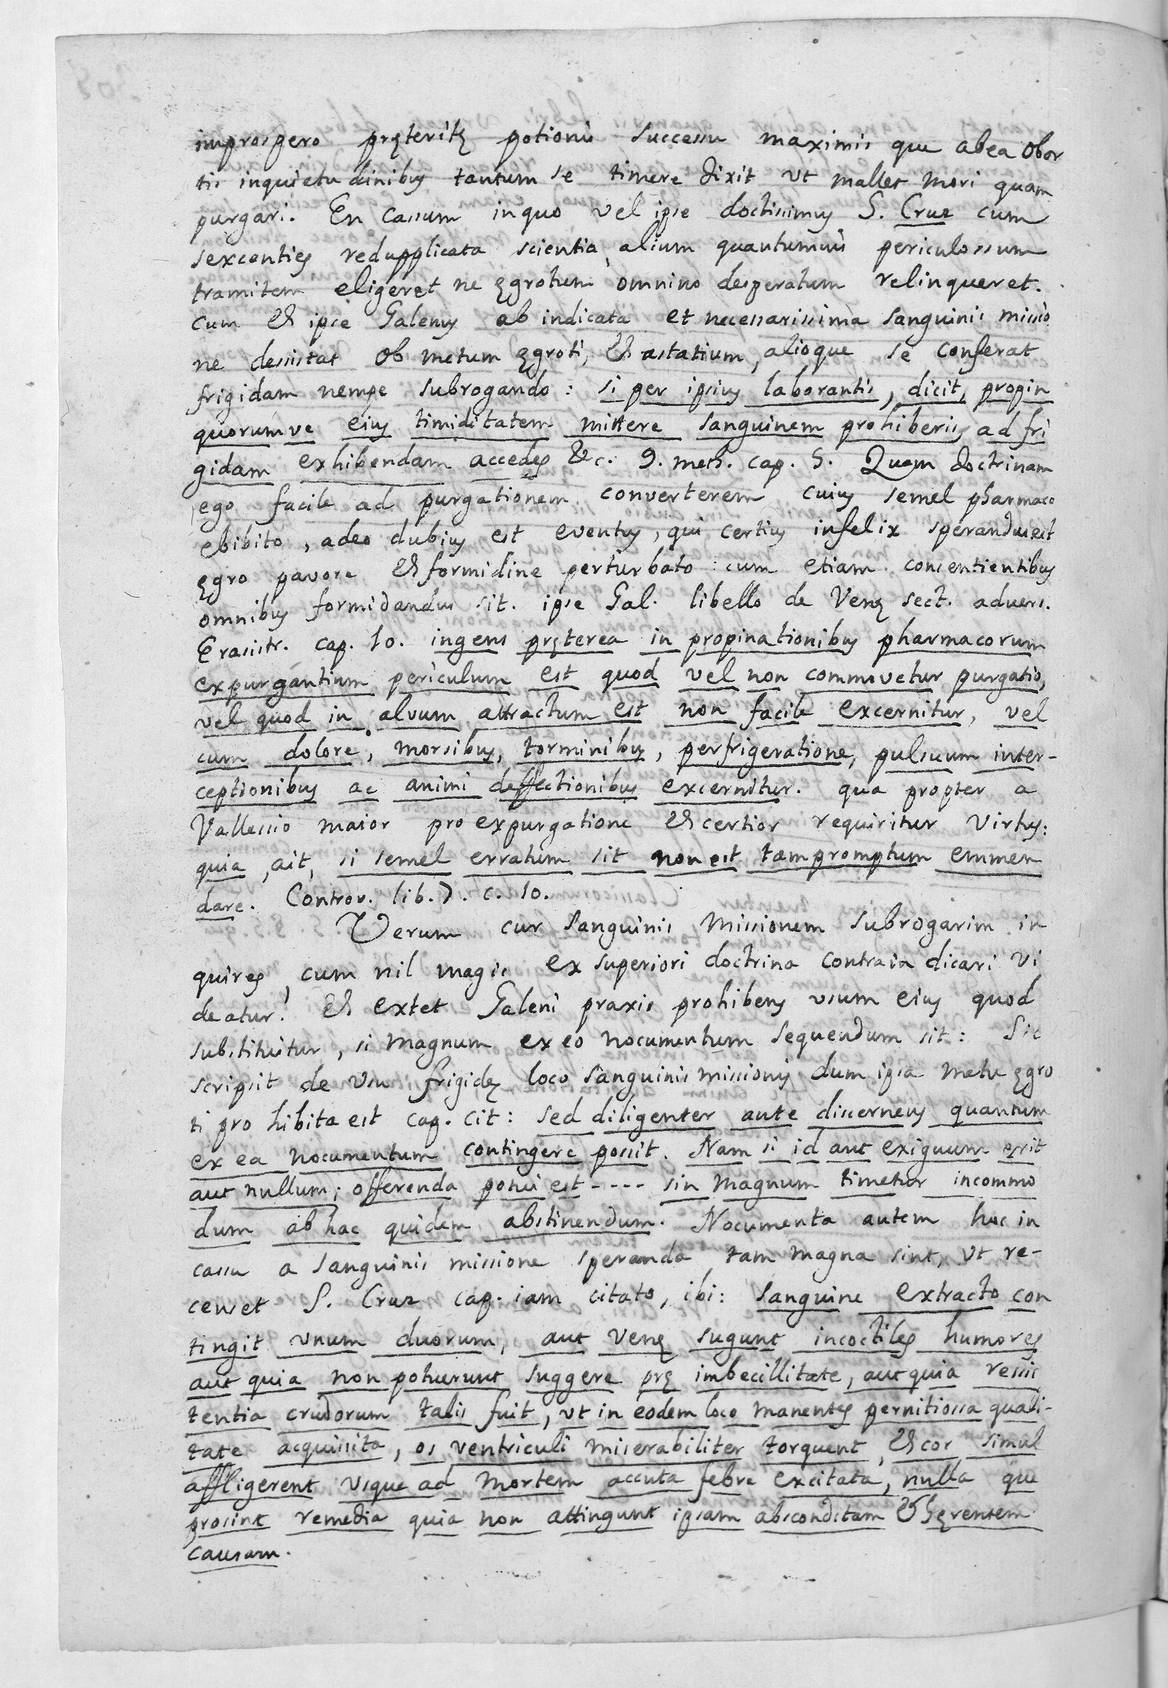 improspero pręteritę potionis successu maximis que abea obor
tis inquietudinibus tantum se timere dixit ut mallet mori quam
purgari. En cassum inquo vel ipse doctissimus S. Cruz cum
sexcenties redupplicata scientia, alium quantumuis periculossum
tramitem eligeret ne ęgrotum omnino desperatum relinqueret.
Cum et ipse Galenus ab indicata et necessarissima sanguinis missio
ne dessistat ob metum ęgroti, et astatium, alioque se conferat
frigidam nempe subrogando: si per ipsius laborantis, dicit, propin
quorumve eius timiditatem mittere sanguinem prohiberis ad fri
gidam exhibendam accedes &c. 9. meth. cap. 5. Quam doctrinam
ego facile ad purgationem converterem cuius semel pharmaco
ebibito, adeo dubius est eventus, qui certius infelix sperandus est
ęgro pavore et formidine perturbato: cum etiam consentientibus
omnibus formidandus sit. ipse Gal. libello de Venę sect. advers.
Erassitr. cap. 10. ingens pręterea in propinationibus pharmacorum
expurgantium periculum est quod vel non commovetur purgatio,
vel quod in alvum attractum est non facile excernitur, vel
cum dolore, morsibus, torminibus, perfrigeratione, pulsuum inter-
ceptionibus ac animi deffectionibus excernitur. qua propter a
Vallessio maior pro expurgatione et certior requiritur virtus:
quia, ait, si semel erratum sit non est tam promptum emmen
dare. Controv. lib. 7. c. 10.
Verum cur sanguinis missionem subrogarim in
quires, cum nil magis ex superiori doctrina contrain dicari vi
deatur! et extet Galeni praxis prohibens usum eius quod
substituitur, si magnum ex eo nocumentum sequendum sit: Sic
scripsit de usu frigidę loco sanguinis missionis dum ipsa metu ęgro
ti prohibita est cap. cit: sed diligenter ante discernens quantum
ex ea nocumentum contingere possit. Nam si id aut exiguum erit
aut nullum; offerenda potui est---- sin magnum timetur incommo
dum ab hac quidem abstinendum. Nocumenta autem hoc in
cassu a sanguinis missione speranda tam magna sint, ut re-
censet S. Cruz cap. iam citato, ibi: sanguine extracto con
tingit unum duorum, aut venę sugunt incoctiles humores
aut quia non potuerunt suggere prę imbecillitate, aut quia ressis
tentia crudorum talis fuit, ut in eodem loco manentes pernitiossa quali-
tate acquisita, os ventriculi miserabiliter torquent, et cor simul
affligerent usque ad mortem accuta febre excitata, nulla que
prosint remedia quia non attingunt ipsam absconditam et hęrentem
causam.